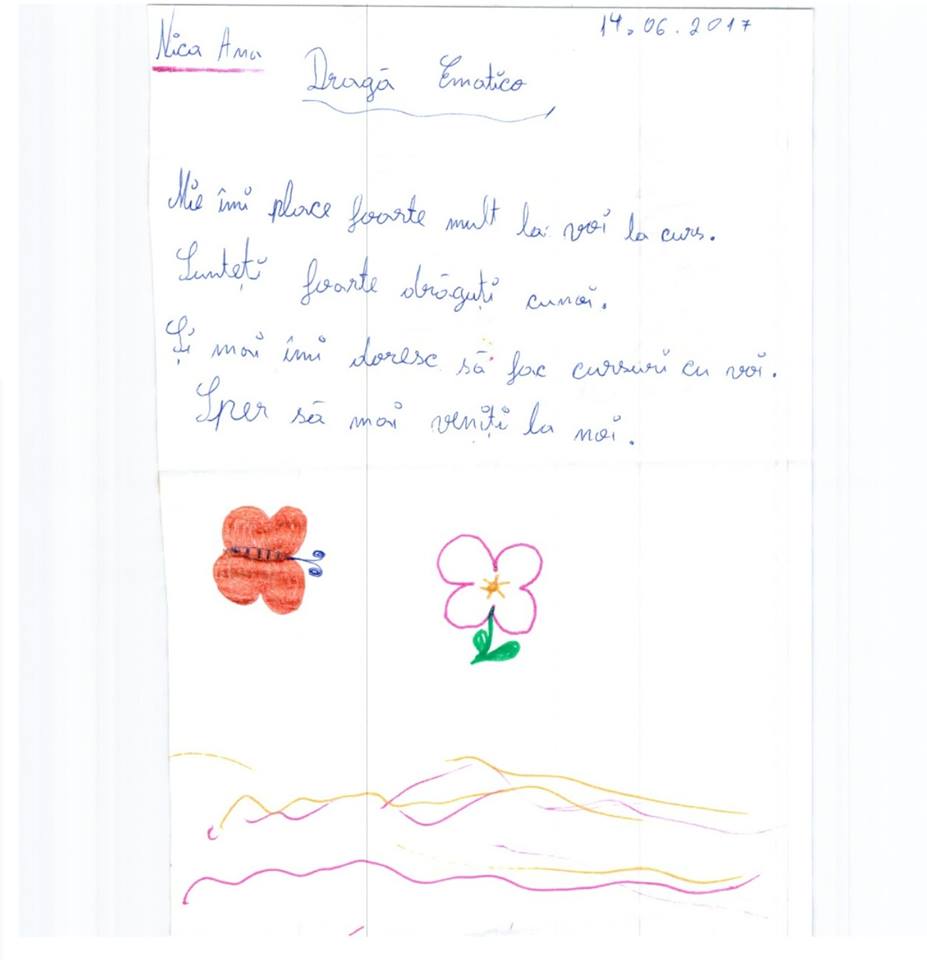 Nica Ana
14.06.2017
Dragă Ematico
Mie îmi place foarte mult la voi la curs.
Sunteți foarte drăguți cunoi.
Și mai îmi doresc să fac cursuri cu voi.
Sper să mai veniți la noi.